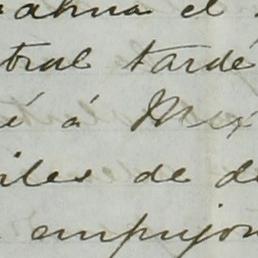 el
tral tardé
é á Méx
iles de de
empujon